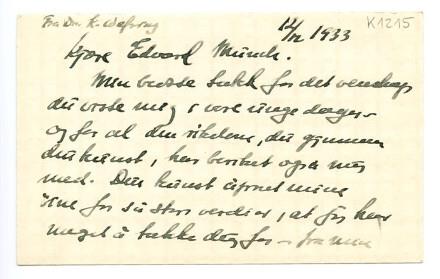 Fra Dr. K. Wefring
12/12 1933
K1215
Kjære Edvard Munch.
Min bedste takk for det venskap
du viste mig i vore unge dager –
og for al den rikdom, du gjennem
din kunst, har beriket også mig
med. Din kunst åpnet mine
öine for så store verdier, at jeg har
meget å takke deg for – fra min